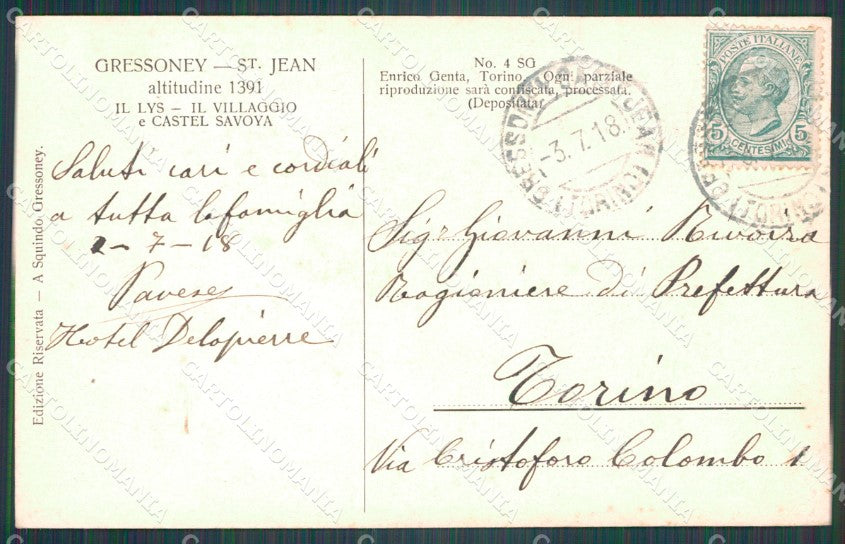 GRESSONEY — ST. JEAN
altitudine 1391
IL LYS – IL VILLAGGIO
e CASTEL SAVOYA
No. 4 SG
Enrico Genta, Torino. Ogni parziale
riproduzione sarà confiscata, processata.
(Depositata)
Saluti cari e cordiali
a tutta la famiglia
2-7-18
Pavese
Hotel Delapierre
Edizione Riservata — A Squindo Gressoney.
POSTE ITALIANE
5 CENTESIMI 5
-3.7.18
(TORINO)
Sigr Giovanni Rivoira
Ragioniere di Prefettura
Torino
Via Cristoforo Colombo 1
CARTOLINOMANIA